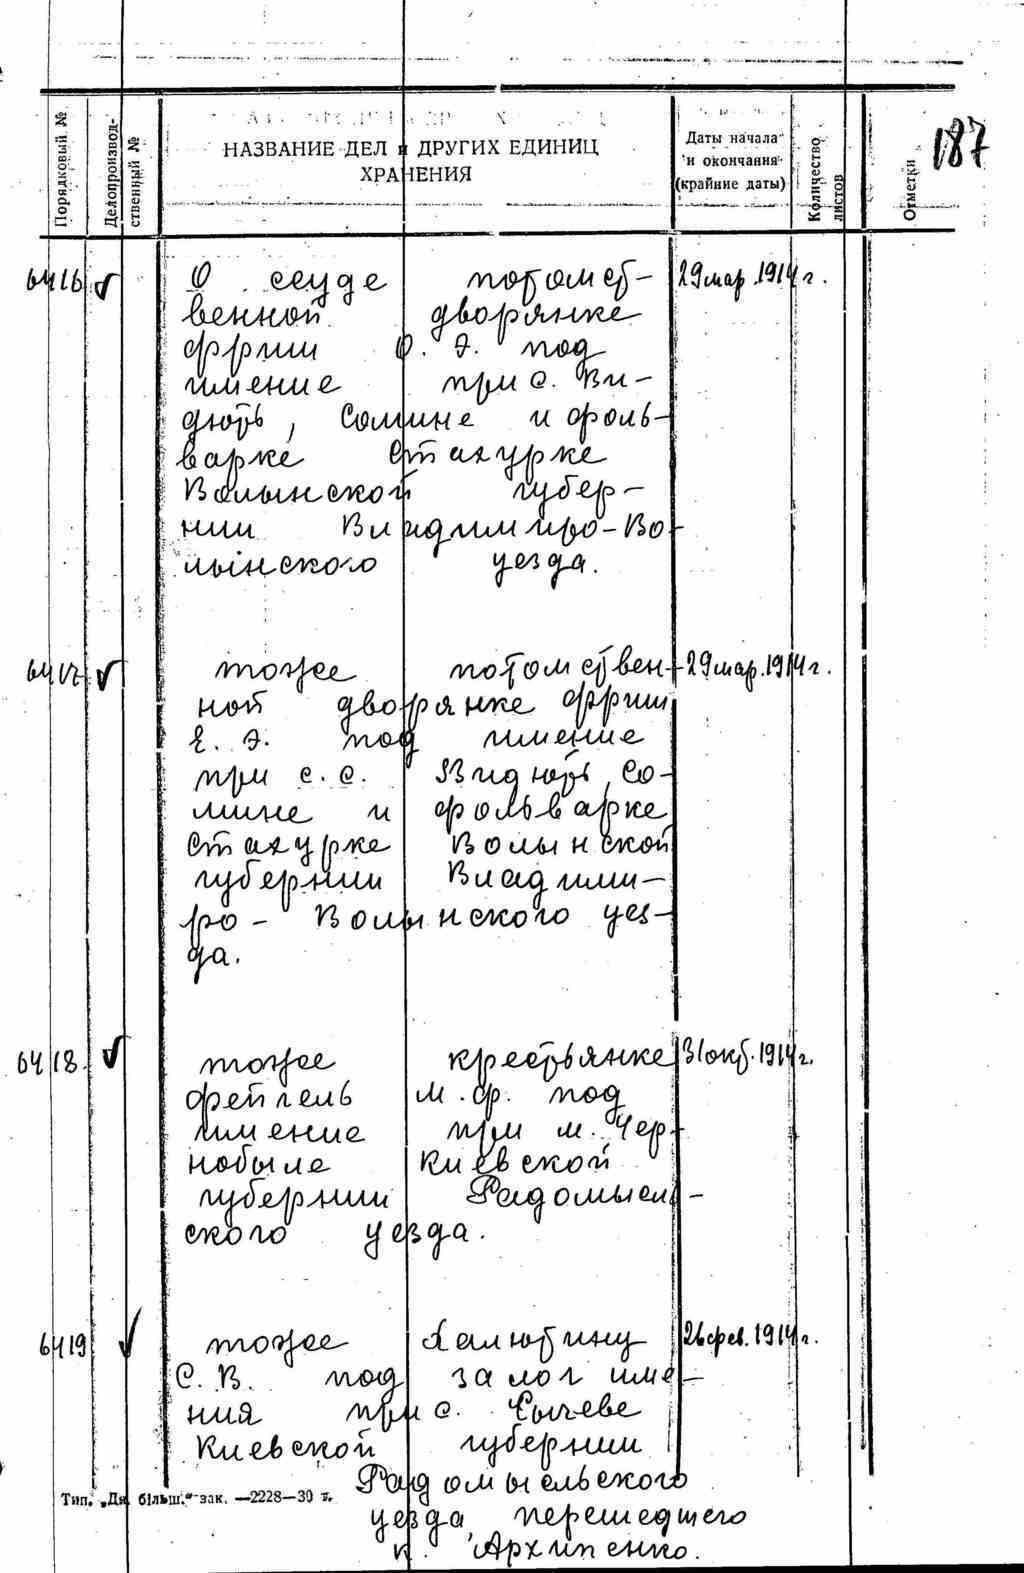 187
Порядковый №
Делопроизвод-
ственный №
НАЗВАНИЕ ДЕЛ и ДРУГИХ ЕДИНИЦ
ХРАНЕНИЯ
Даты начала
и окончания
(крайние даты)
Количество
листов
Отметки
6416 √ О ссуде потомст- 29 мар. 1914 г.
венной дворянке
Фриш О. Э. под
имение при с. Ви-
дють, Сомине и фоль-
варке Стахурке
Волынской губер-
нии Владимиро-Во-
лынского уезда.
6417 √ тоже потомствен- 29 мар. 1914 г.
ной дворянке Фриш
Е. Э. под имение
при с. с. Видють, Со-
мине и фольварке
Стахурке Волынской
губернии Владими-
ро-Волынского уез-
да.
6418. √ тоже крестьянке 31 окт. 1914 г.
Фейгель М. Ф. под
имение при м. Чер-
нобыле Киевской
губернии Радомысль-
ского уезда.
6419 √ тоже Халютину 26 фев. 1914 г.
С. В. под залог име-
ния при с. Сычеве
Киевской губернии
Радомысльского
уезда, перешедшего
к. Архипенко.
Тип. „Дн. більш." зак. —2228—30 т.